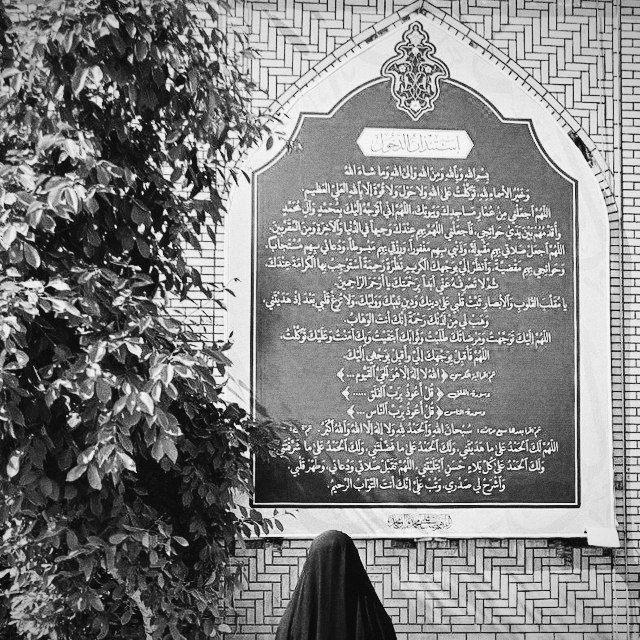 استئذان الدخول
بسم الله وبالله ومن الله وإلى الله وما شاء الله
وخير الأسماء لله توكلت على الله ولا حول ولا قوة إلا بالله العلي العظيم
اللهم اجعلني من عمار مساجدك وبيوتك اللهم إني أتوجه إليك بمحمد وآل محمد
وأقدمهم بين يدي حوائجي فاجعلني اللهم بهم عندك وجيها في الدنيا والآخرة ومن المقربين
اللهم اجعل صلاتي بهم مقبولة وذنبي بهم مغفورا ورزقي بهم مبسوطا ودعائي بهم مستجابا
وحوائجي بهم مقضية وانظر إلي بوجهك الكريم نظرة رحيمة أستوجب بها الكرامة عندك
ثم لا تصرفه عني أبدا برحمتك يا أرحم الراحمين
يا مقلب القلوب والأبصار ثبت قلبي على دينك ودين نبيك ووليك ولا تزغ قلبي بعد إذ هديتني
وهب لي من لدنك رحمة إنك أنت الوهاب
اللهم إليك توجهت ومرضاتك طلبت وثوابك ابتغيت وبك آمنت وعليك توكلت
اللهم فأقبل بوجهك إلي وأقبل بوجهي إليك
ثم اقرأ آية الكرسي ﴿ الله لا إله إلا هو الحي القيوم ... ﴾
وسورة الفلق ﴿ قل أعوذ برب الفلق ..... ﴾
وسورة الناس ﴿ قل أعوذ برب الناس ... ﴾
سبحان الله والحمد لله ولا إله إلا الله والله أكبر
اللهم لك الحمد على ما هديتني ولك الحمد على ما فضلتني ولك الحمد على ما شرفتني
ولك الحمد على كل بلاء حسن ابتليتني اللهم تقبل صلاتي ودعائي وطهر قلبي
واشرح لي صدري وتب علي إنك أنت التواب الرحيم